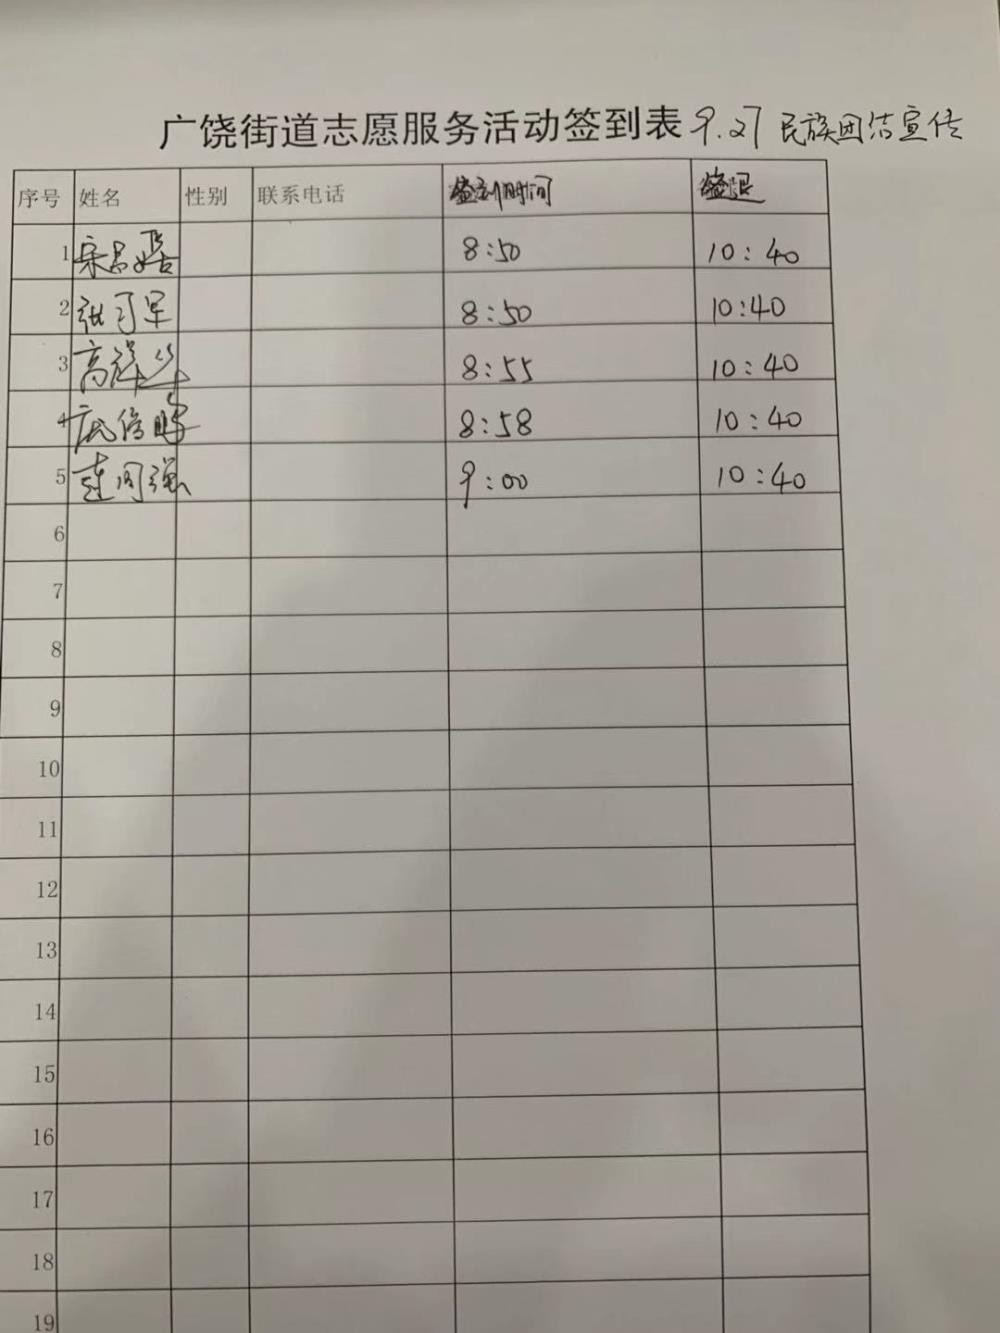 广饶街道志愿服务活动签到表 9.27 民族团结宣传
序号 姓名 性别 联系电话 签到时间 签退
1 8:50 10:40
2 张 军 8:50 10:40
3 高 8:55 10:40
4 8:58 10:40
5 强 9:00 10:40
6
7
8
9
10
11
12
13
14
15
16
17
18
19